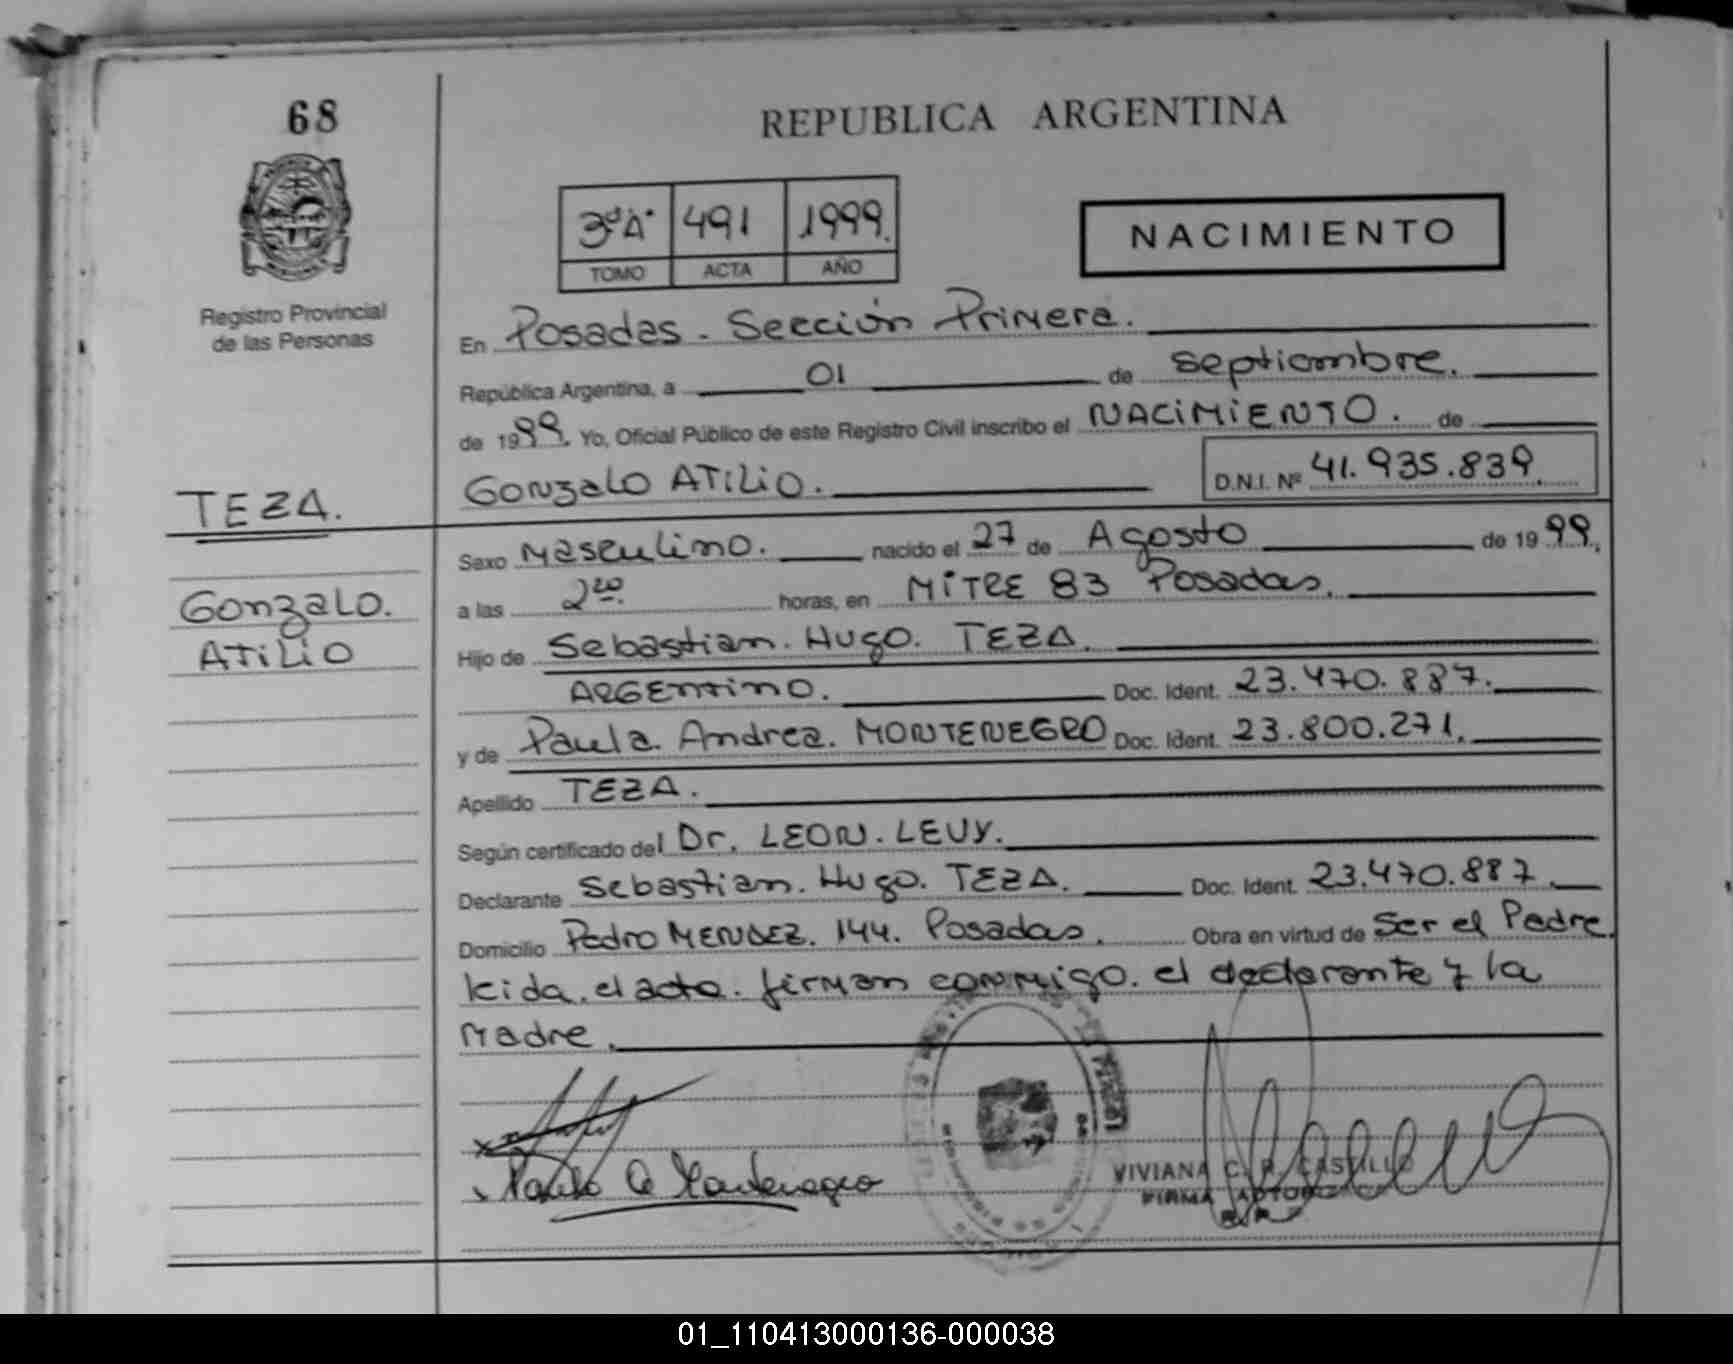 68
REPUBLICA ARGENTINA
3º A. 491 1999.
TOMO ACTA AÑO
NACIMIENTO
Registro Provincial
de las Personas
En Posadas - Sección Primera.
República Argentina, a 01 de septiembre.
de 1999. Yo, Oficial Público de este Registro Civil inscribo el NACIMIENTO. de
Gonzalo ATILIO. D.N.I. Nº 41.935.839.
TEZA.
Gonzalo.
ATILIO
Sexo Masculino. nacido el 27 de Agosto de 1999.
a las 2 20 horas, en MITRE 83 Posadas.
Hijo de Sebastian. Hugo. TEZA.
ARGENTINO. Doc. Ident. 23.470.887.
y de Paula. Andrea. MONTENEGRO Doc. Ident. 23.800.271.
Apellido TEZA.
Según certificado del Dr. LEON. LEVY.
Declarante Sebastian. Hugo. TEZA. Doc. Ident. 23.470.887.
Domicilio Pedro MENDEZ. 144. Posadas. Obra en virtud de Ser el Padre.
Leida. el acta. firman conmigo. el declarante y la
Madre.
Paula A Montenegro
VIVIANA C. R. CASTILLO
FIRMA
01_110413000136-000038